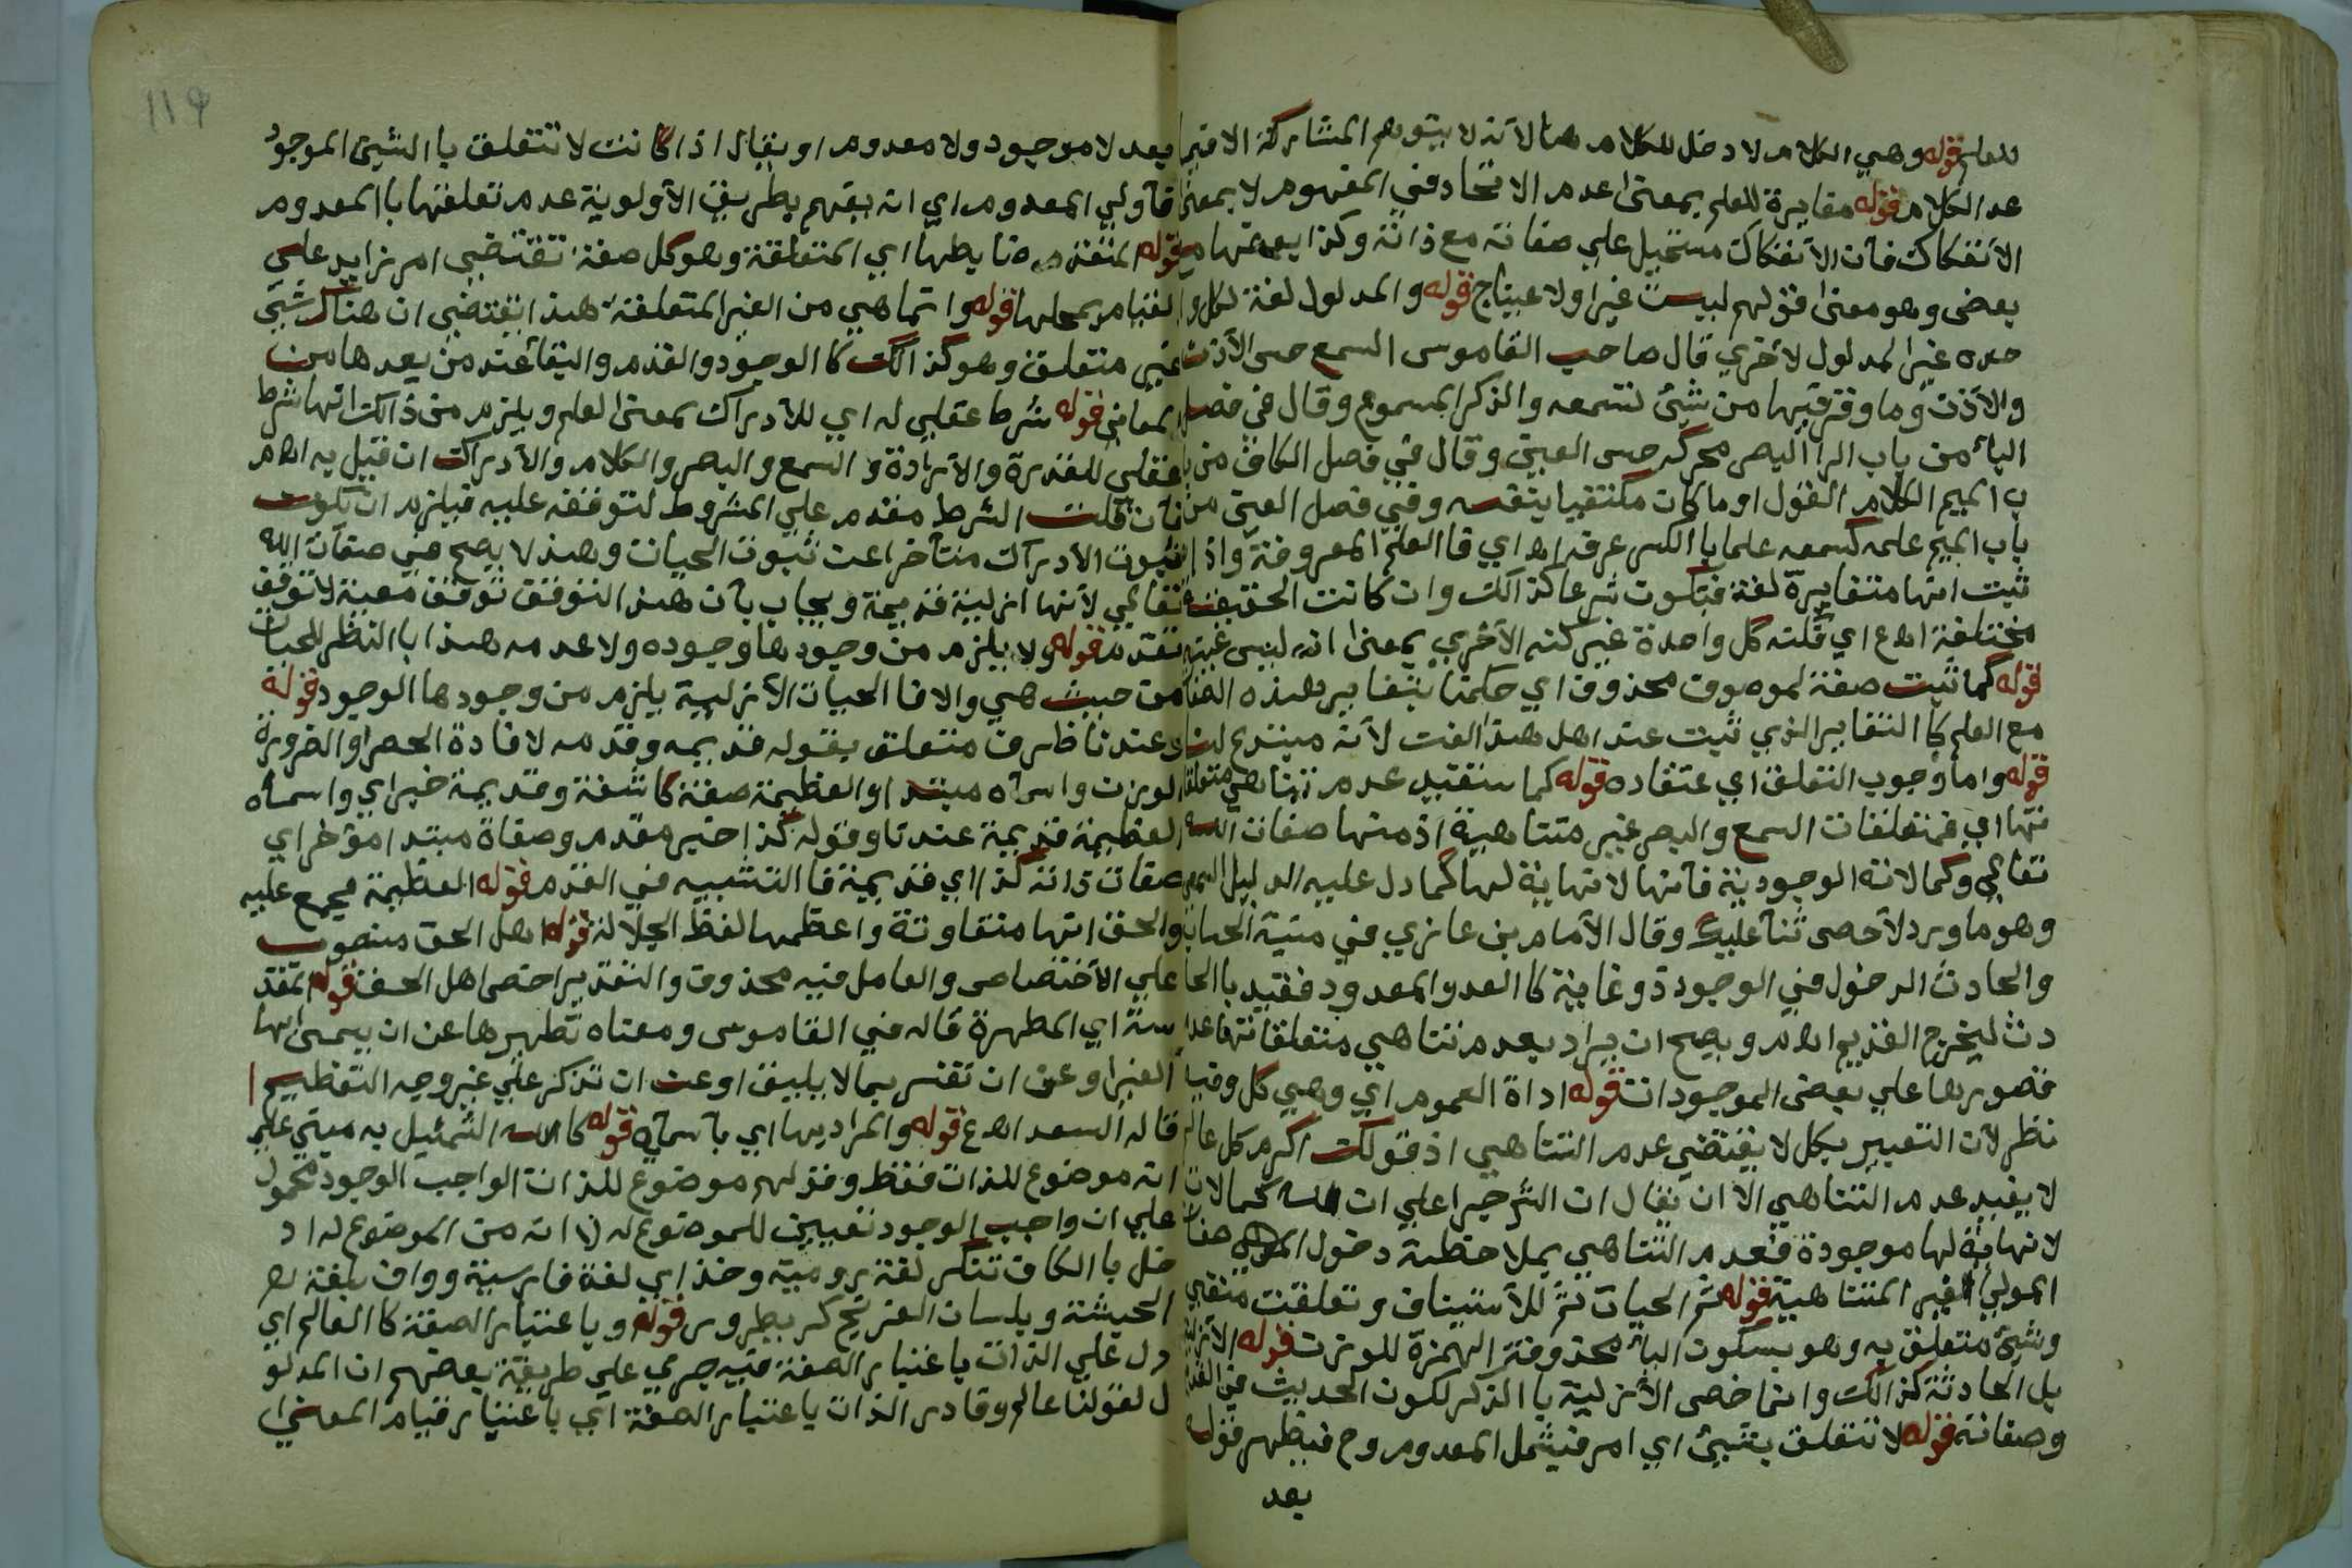 للعلم قوله وهي الكلام لا دخل للكلام هنا لانه لا يتوهم المشاركة الا فيما
عد الكلام قوله مغايرة للعلم بمعنى عدم الاتحاد في المفهوم لا بمعنى
الانفكاك فان الانفكاك مستحيل علي صفاته مع ذاته وكذا بعضها مع
بعض وهو معنى قولهم ليست غيرا ولا عينا ح قوله والمدلول لغة لكل وا
حده غير المدلول لاخري قال صاحب القاموس السمع حس الأذن
والأذن وما وقر فيها من شئ تسمعه والذكر المسموع وقال في فصل
الباء من باب الرا البصر محركه حس العين وقال في فصل الكاف من با
ب الميم الكلام القول او ما كان مكتفيا بنفسه وفي فصل العين من
باب الميم علمه كسمعه علما باالكسر عرفه اه اي فاالعلم المعروفة واذا
ثبت انها متغايرة لغة فتكون شرعا كذالك وان كانت الحقيقة
مختلفة اه ع اي قلته كل واحدة غير كنه الأخري بمعنى انه ليس عينه
قوله كما ثبت صفة لموصوف محذوف اي حكمنا بتغاير هذه الصفا
مع العلم كا التغاير الذي ثبت عند اهل هذا الفن لأنه مبتدع لنا
قوله واما وجوب التعلق اي عتقاده قوله كما ستفيد عدم تناهي متعلقا
تها اي فمتعلقات السمع والبصر غير متناهية اذ منها صفات الله
تعالي وكمالاته الوجودية فانها لا نهاية لها كما دل عليه الدليل السمعي
وهو ما ورد لاحصى ثنا عليك وقال الأمام بن غازي في متية الحساب
والحادث الدخول في الوجود ذو غاية كا العد والمعدود فقيد باالحا
دث ليخرج القديم اه م ويصح ان يراد بعدم تناهي متعلقاتها عدم
قصورها علي بعض الموجودات قوله اداة العموم اي وهي كل وفيه
نظر لان التعبير بكل لا يقتضي عدم التناهي اذ قولك اكرم كل عالم
لا يفيد عدم التناهي الا ان يقال ان الشرح جرا علي ان لله كمالات
لا نهاية لها موجودة فعدم التناهي بملاحظة دخول صفات
المولي الغير المتناهية قوله ثم الحيات ثم للأستيناف وتعلقت منفي
وشئ متعلق به وهو بسكون الياء محذوفة الهمزة للوزن قوله الأزلية
بل الحادثة كذالك وانما خص الأزلية با الذكر لكون الحديث في القديم
وصفاته قوله لا تتعلق بشيئ اي امر فيشمل المعدوم وح فيظهر قوله
بعد
119
بعد لا موجود ولا معدوم او يقال اذا كانت لا تتعلق با الشيئ الموجود
فأولي المعدوم اي انه يفهم بطريق الأولوية عدم تعلقها باالمعدوم
قوله المتقدم ضابطها اي المتعلقة وهو كل صفة تقتضي امر زايد علي
القيام بمحلها قوله وانما هي من الغير المتعلقة هذا يقتضي ان هناك شئ
غير متعلق وهو كذالك كا الوجود والقدم والبقا عند من يعدها من
المعاني قوله شرط عقلي له اي للأدراك بمعنى العلم ويلزم من ذالك انها شرط
عقلي للقدرة والأرادة و السمع والبصر والكلام والأدراك ان قيل به اه م
فان قلت الشرط مقدم علي المشروط لتوقفه عليه فيلزم ان تكون
ثبوت الأدراك متأخرا عن ثبوت الحيات وهذ لا يصح في صفات الله
تعالي لأنها ازلية قديمة ويجاب بأن هذ التوقف توقف معية لا توقف
تقدم قوله ولا يلزم من وجودها وجوده ولا عدمه هذا باالنظر للحيات
من حيث هي والا فا الحيات الأزلية يلزم من وجودها الوجود قوله
وعندنا ظرف متعلق بقوله قديمه وقدمه لافادة الحصر او الضرورة
الوزن واسماه مبتدا والعظيمة صفة كاشفة وقديمة خبر اي واسماه
العظيمة قديمة عندنا وقوله كذا خبر مقدم وصفاة مبتدا مؤخر اي
صفات ذاته كذا اي قديمة فا التشبيه في القدم قوله العظيمة مجمع عليه
والحق انها متفاوتة واعظمها لفظ الجلالة قوله اهل الحق منصوب
علي الأختصاص والعامل فيه محذوف والتقدير اخص اهل الحق قوله المقد
سة اي المطهرة قاله في القاموس ومعناه تطهيرها عن ان يسمى بها
الغير او عن ان تفسر بما لا يليق او عن ان تذكر علي غير وجه التعظيم
قاله السعد اه ع قوله والمراد بها اي بأسمايه قوله كا الله التمثيل به مبني علي
انه موضوع للذات فقط وقولهم موضوع للذات الواجب الوجود محمول
علي ان واجب الوجود تعيين للموضوع له لا انه من الموضوع له اد
خل با الكاف تنكر لغة رومية وخذاي لغة فارسية وواق بلغة اه
الحبشة وبلسان الفرنج كر يطرور قوله وباعتبار الصفة كا العالم اي
دل علي الذات باعتبار الصفة فيه جري علي طريقة بعضهم ان المدلو
ل لقولنا عالم وقادر الذات باعتبار الصفة اي باعتبار قيام المعني